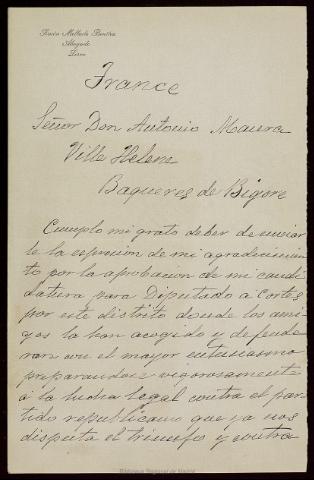 Abogado
France
Señor Don Antonio Maura
Ville Helene
Baqueres de Bigore
Cumplo mi grato deber de enviar
le la expresion de mi agradecimien
to por la aprobacion de mi candi
datura para Diputado a Cortes
por este distrito donde los ami
gos la han acogido y defende
ran con el mayor entusiasmo
preparandose vigorosamente
á la lucha legal contra el par
tido republicano que ya nos
disputa el triunfo y contra
Biblioteca Regional de Madrid